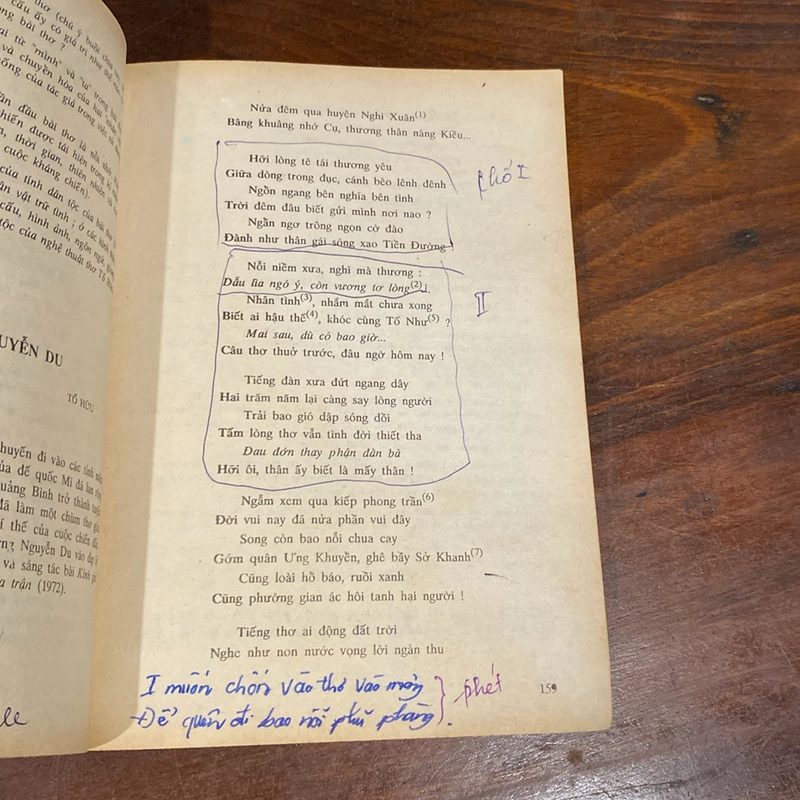 thơ (chú ý buổi
cấu ấy có giá trị như thế
trong bài thơ ?
ại từ "mình" và "ta" trong
và chuyển hóa của hai
sống của tác giả trong việc
ần đầu bài thơ là nỗi nhớ
chiến được tái hiện trong
n, thời gian, thiên nhiên và
cuộc kháng chiến).
của tính dân tộc của bài thơ
ân vật trữ tình ; ở các hình
cấu, hình ảnh, ngôn ngữ,
tộc của nghệ thuật thơ Tố
UYỄN DU
TỐ HỮU
chuyến đi vào các tỉnh
của đế quốc Mĩ đã lan
Quảng Bình trở thành tuyến
đã làm một chùm thơ
í thế của cuộc chiến đấu
Nguyễn Du vào dịp
và sáng tác bài Kính
a trận (1972).
Nửa đêm qua huyện Nghi Xuân(1)
Bâng khuâng nhớ Cụ, thương thân nàng Kiều...
Hỡi lòng tê tái thương yêu
Giữa dòng trong đục, cánh bèo lênh đênh
Ngổn ngang bên nghĩa bên tình
Trời đêm đâu biết gửi mình nơi nao ?
Ngẩn ngơ trông ngọn cờ đào
Đành như thân gái sóng xao Tiền Đường
khổ I
Nỗi niềm xưa, nghĩ mà thương :
Dẫu lìa ngó ý, còn vương tơ lòng(2)...
Nhân tình(3), nhắm mắt chưa xong
Biết ai hậu thế(4), khóc cùng Tố Như(5) ?
Mai sau, dù có bao giờ...
Câu thơ thuở trước, đâu ngờ hôm nay !
II
Tiếng đàn xưa đứt ngang dây
Hai trăm năm lại càng say lòng người
Trải bao gió dập sóng dồi
Tấm lòng thơ vẫn tình đời thiết tha
Đau đớn thay phận đàn bà
Hỡi ôi, thân ấy biết là mấy thân !
Ngẫm xem qua kiếp phong trần(6)
Đời vui nay đã nửa phần vui đây
Song còn bao nỗi chua cay
Gớm quân Ưng Khuyển, ghê bầy Sở Khanh(7)
Cũng loài hổ báo, ruồi xanh
Cũng phường gian ác hôi tanh hại người !
Tiếng thơ ai động đất trời
Nghe như non nước vọng lời ngàn thu
I muốn chốn vào thơ vào mộng
Để quên đi bao nỗi phũ phàng.
phét
159